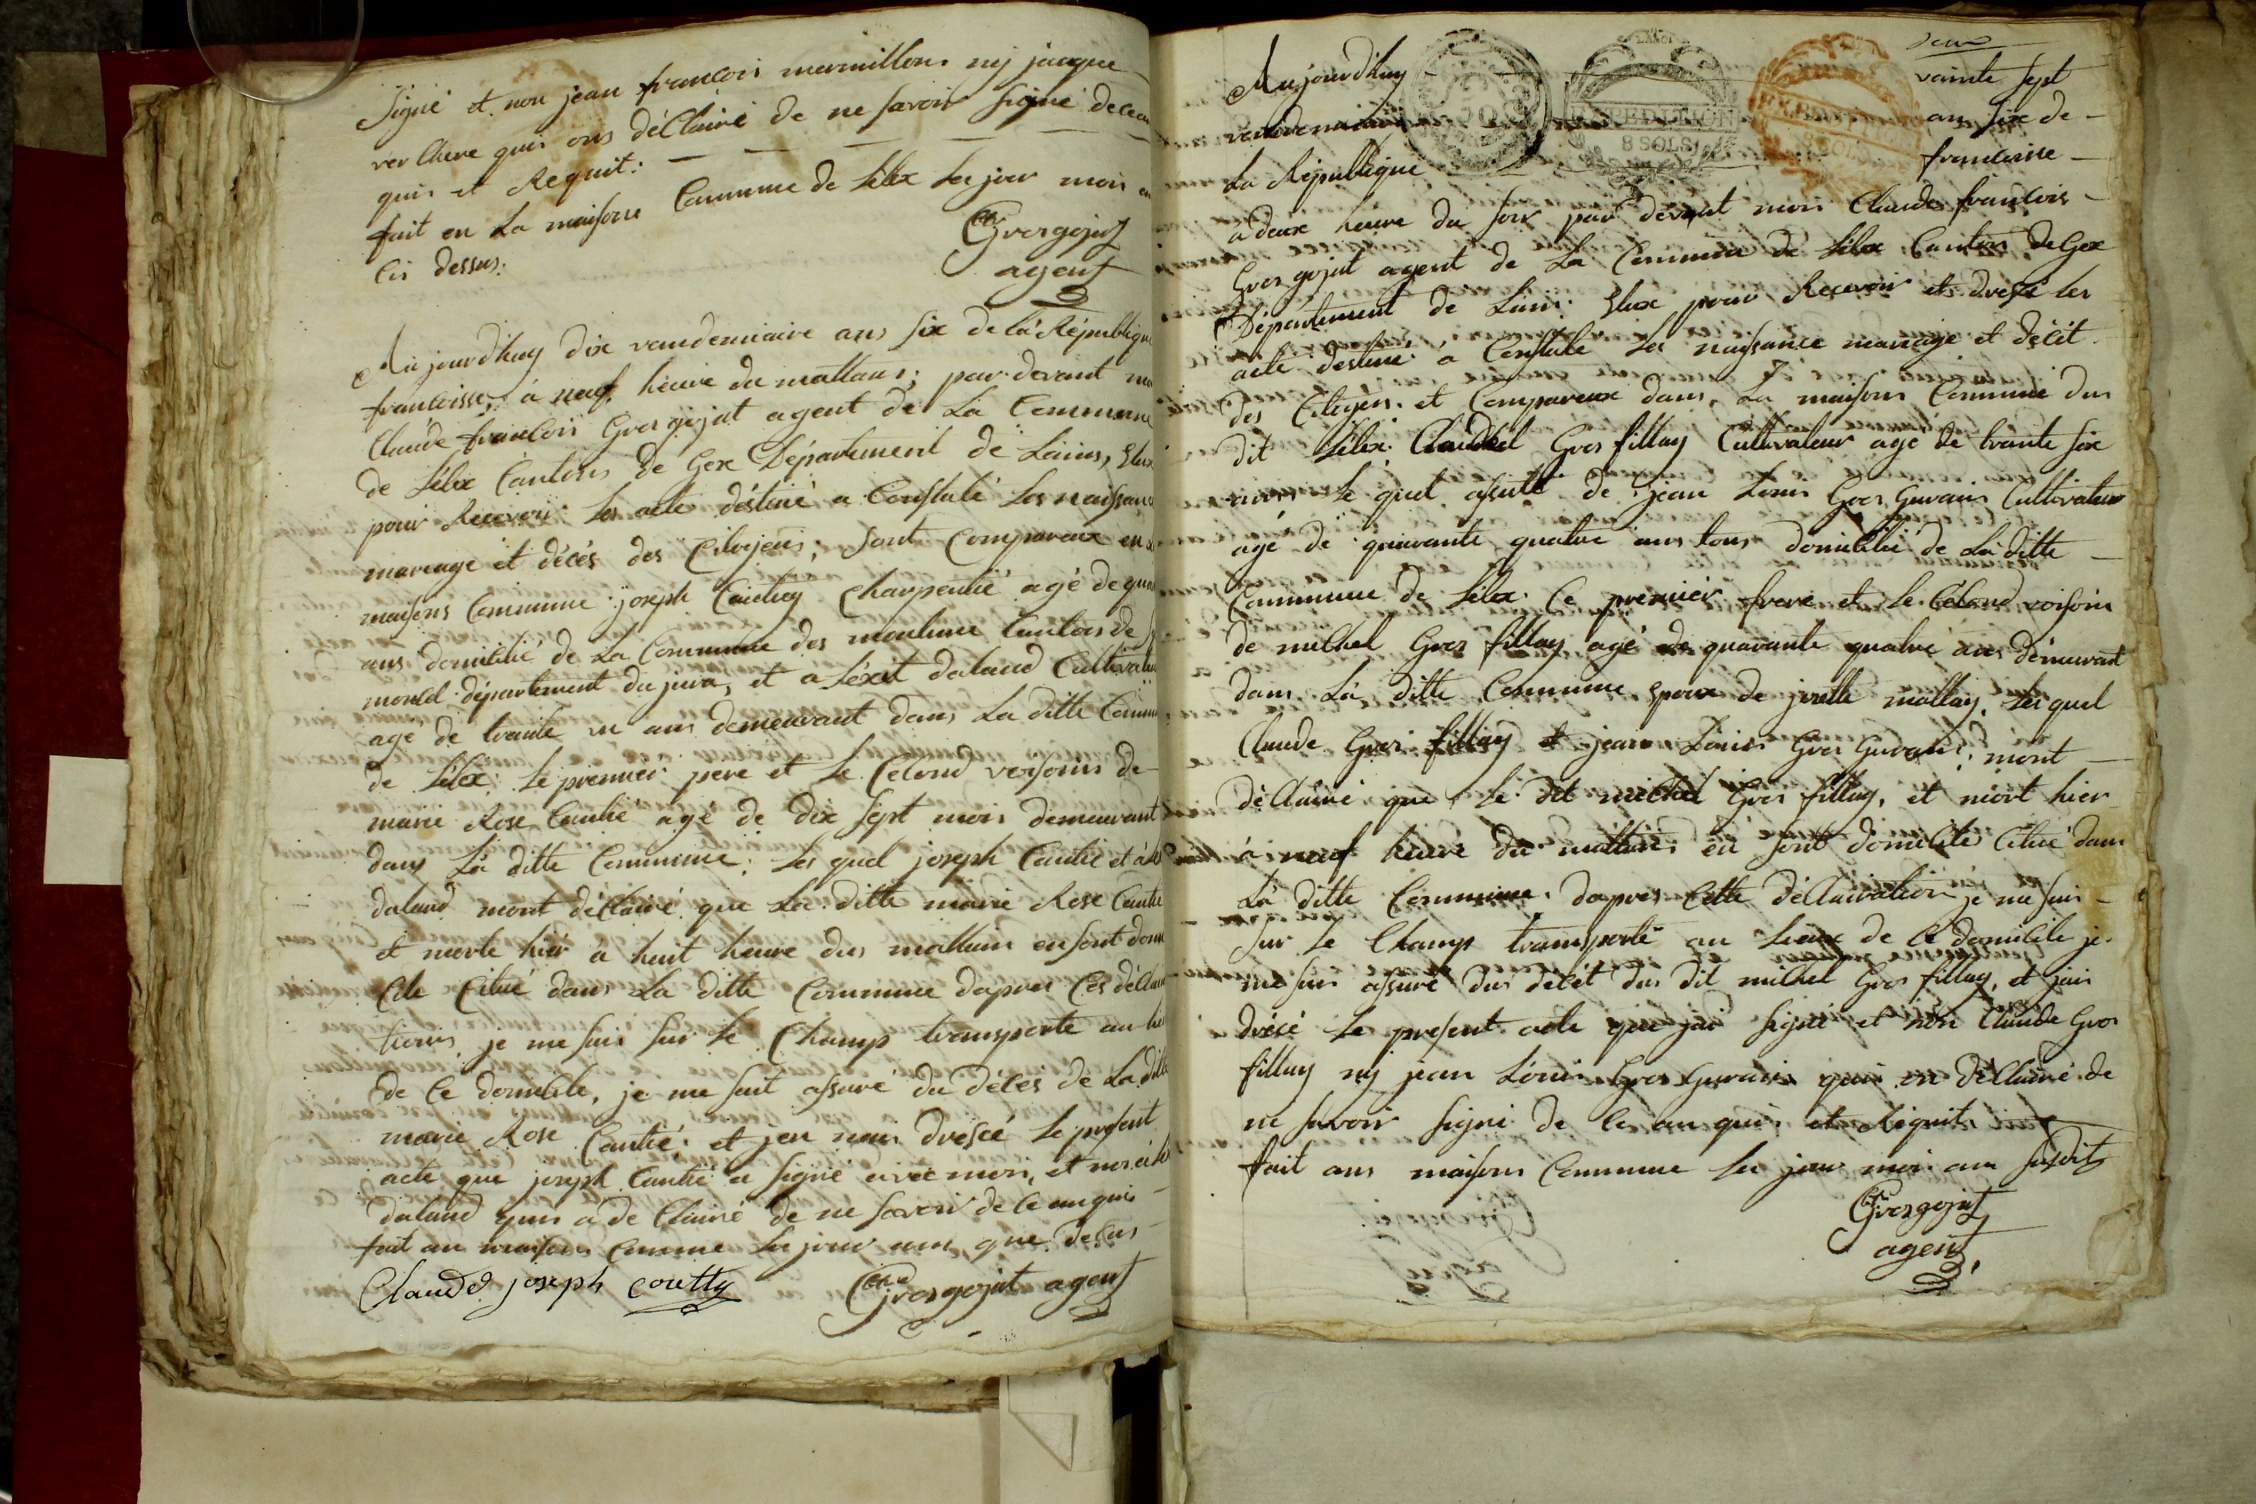 Signé et non jean francois mermillons nij jacque
ver Chere quis ons déClairé de ne savoir signé de ce en
quis et Requit:
fait en La maisons Commune de Lélex Les jour mois en
Cis dessus:
Grosgojat
agent
Aujourdhuy dix vandemiaire ans six de la République
francoisse, à neuf heure du mattans; par devant mo
Claude francois Grosgojat agent de La Commune
de Lélex Cantons de Gex Département de Lains, Elux
pour Recevoir Les acte destiné a Constaté Les naissance
mareage et décés des Citoyens; Sont Compareux en
maisons Commune joseph Cauthey Charpentié agé de quar
ans domicilié de La Commune des mouline Cantons de
mould département du jura, et a Léxit daland Cultivateu
agé de trante un ans demeurant dans La ditte Commu
de Lélex: Le premier pere et Le Celond voisoins de
marie Rose Cautié agé de dix sept mois demeurant
dans La ditte Commune; Les quel joseph Cautié et à
daland mont déClairé que La ditte marie Rose Cautié
et morte hiér a huit heure dus mattuin en sont domi
Cile Citué dans La ditte Commune daprer Ces déClair
tions, je me suis sur Le Champ transporte au lieu
de Ce domicile, je me suit assuré du décés de La ditte
marie Rose Cautié; et jen nais dressé Le present
acte que joseph Cautié a Signé avec mois, et non
daland quis a de Clairé de ne savoir de Ce enquis
fait au maisons Commune Les jour ans que desus
Claude joseph Coutty Grosgojat agent
Aujourdhuy vainte sept
vandemiaire ans six de
La République francoisse
a deux heure du soir par devant mois Claude francois
Gros gojat agent de La Commune de Lélex Canton De Gex
Département de Lain: Elux pour Recevoir et dressé les
acte destiné a Constate Les naissance mareage et décét
des Citoyens et Compareux dans La maisons Commune dus
dit Lélex; Claude Gros fillay Cultivateur agé de trante six
Le quel assité de jean Louis Gros Gurains Cultivateur
agé de quarante quatre ans tous domicilié de La ditte
Commune de Lélex: Ce premier frere et Le Celond voisoin
de michel Gros fillay agé de quarante quatre ans démeurant
dans La ditte Commune Epoux de mattay, Les quel
Claude Gros fillay et jean Louis Gros Gurains; mont
déClairé que Le dit michel Gros fillay, et mort hier
à neuf heure du mattuin en sont domicile Citué dans
La ditte Commune. daprer Cette déClairation je me suis
sur Le Champ transporté au Lieux de Ce domicile je
me suis assuré dus décét dus dit michel Gros fillay, et jais
drésé Le present acte que jai signé et non Claude Gros
fillay nij jean Louis Gros Gurains quis on déClairé de
ne savoir signé de Ce en quis et Réquit
fait ans maisons Commune Les jour mois ans susdit
Grosgojat
agent
EXPEDITION
8 SOLS